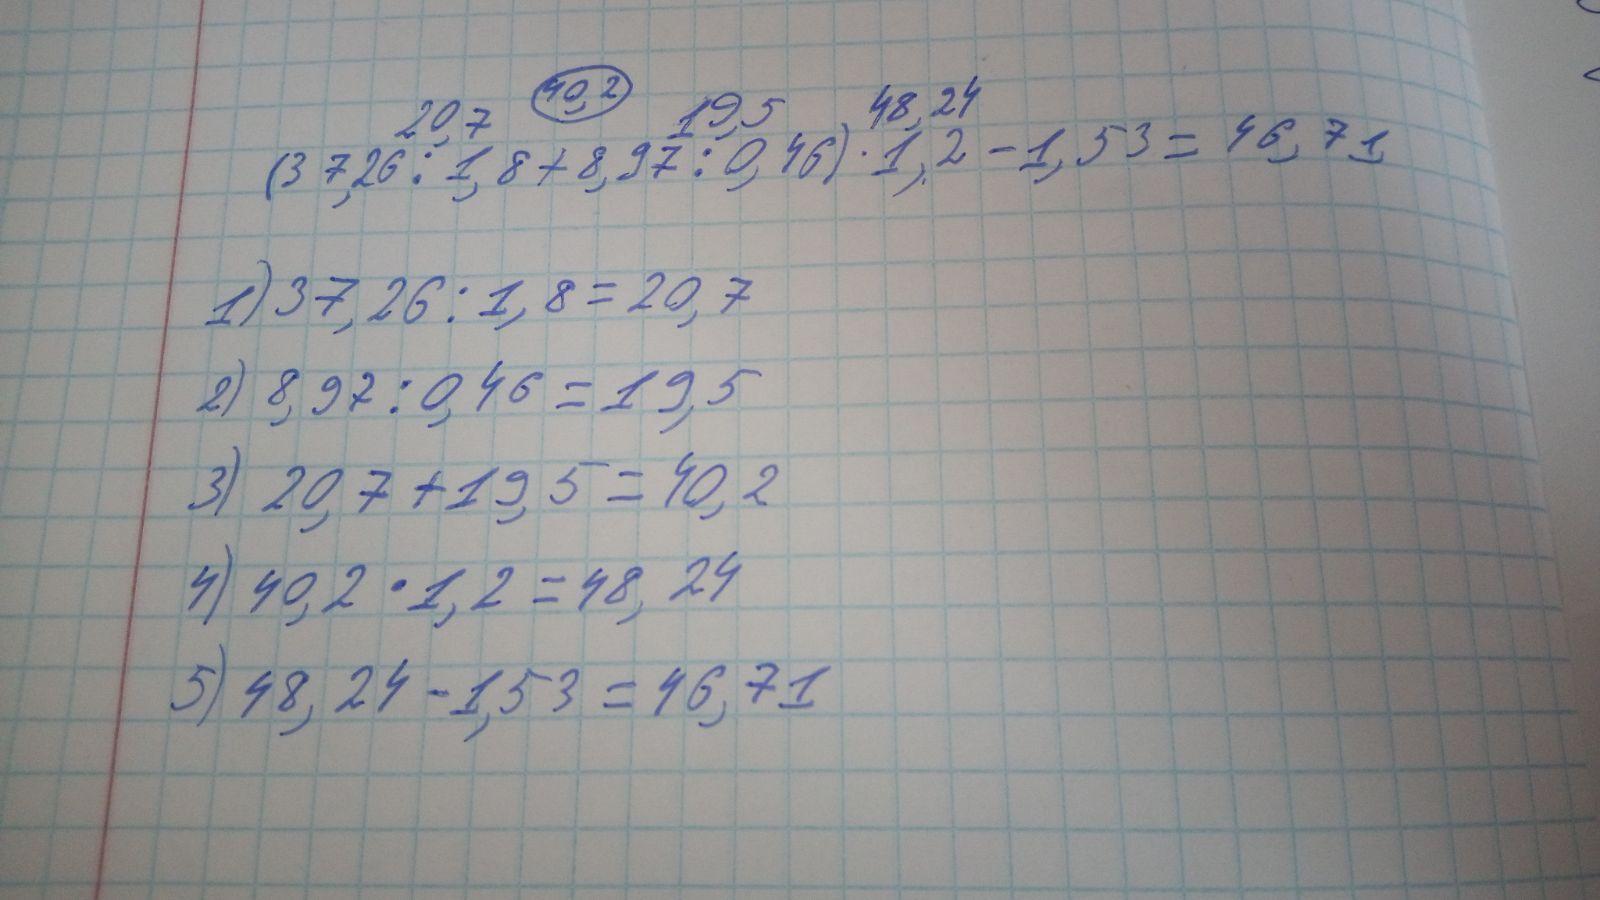 20,7 40,2 19,5 48,24
(37,26 : 1,8 + 8,97 : 0,46) · 1,2 - 1,53 = 46,71
1) 37,26 : 1,8 = 20,7
2) 8,97 : 0,46 = 19,5
3) 20,7 + 19,5 = 40,2
4) 40,2 · 1,2 = 48,24
5) 48,24 - 1,53 = 46,71